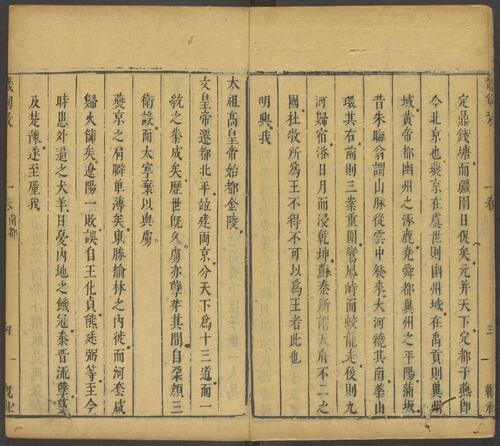 定鼎錢塘而疆圉日促矣元并天下定都于燕卽
今北京也燕京在虞世則幽州域在禹貢則冀州
域黃帝都幽州之涿鹿堯舜都冀州之平陽蒲坂
昔朱晦翁謂山脉從雲中發來大河繞其南華山
環其右前則三案重圍鸞鳳峙而蛟龍走後則九
河歸宿洛日月而浸乾坤蘇秦所謂天府不二之
國杜牧所爲王不得不可以爲王者此也
明興我
太祖高皇帝始都金陵
文皇帝遷都北平竝建兩京分天下爲十三道而一
統之業成矣歷世旣久虜亦孽芽其間自朶顏三
衛設而大寧棄以與虜
燕京之肩髀單薄矣東勝榆林之內徙而河套咸
歸火篩矣遼陽一敗誤自王化貞熊廷弼等至今
時患外逼之犬羊日憂內地之饑寇秦晋流孽蔓
及楚豫遂至厪我
卷
南都
四